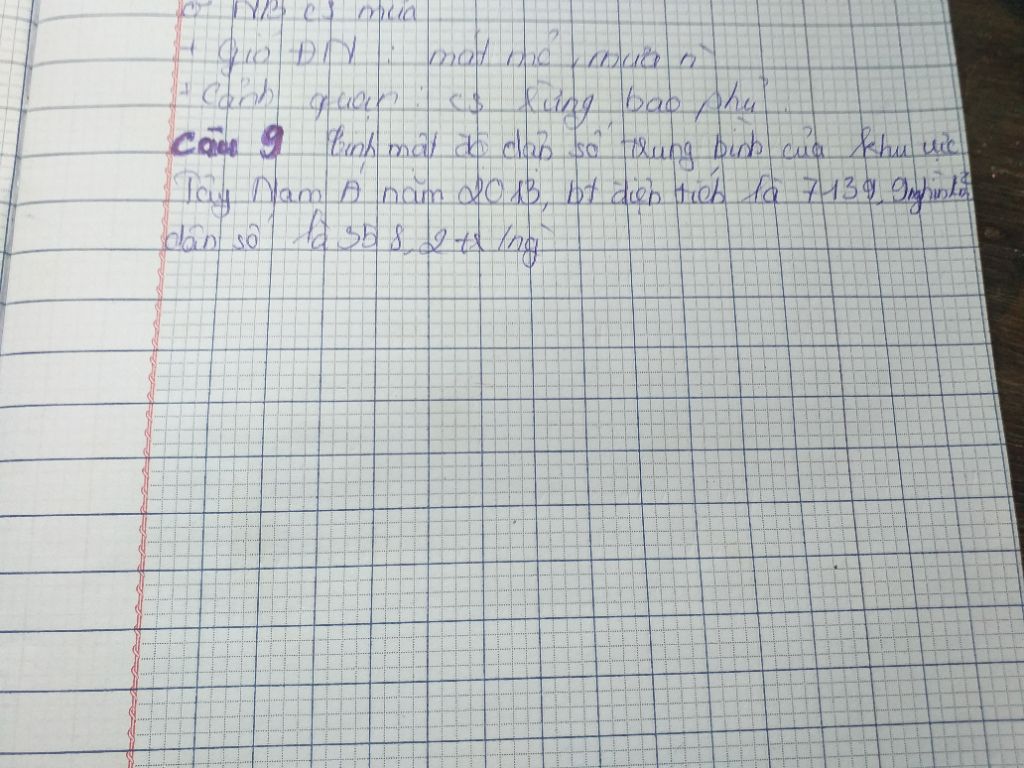 cs mưa
+ gió ĐN : mát mẻ, mưa n`
+ Cảnh quan : cs rừng bao phủ.
Câu 9 tính mật độ dân số trung bình của khu vực
Tây Nam Á năm 2013, bt diện tích là 7139,9 nghìn
dân số là 358,2 tr/ng`